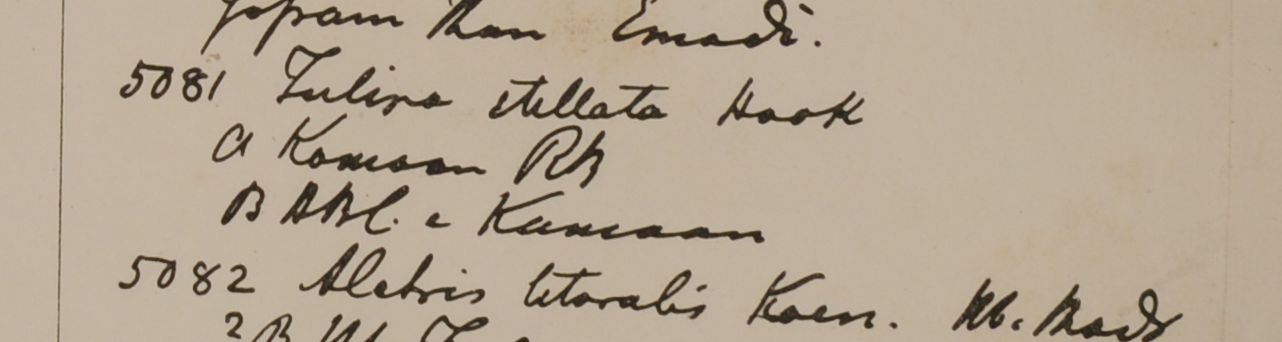 than Emodi.
5081 Tulipa stellata Hook
a Kamaon RB
B HBC. e Kamaon
5082 Aletris litoralis Koen. Hb. Madr
2 B